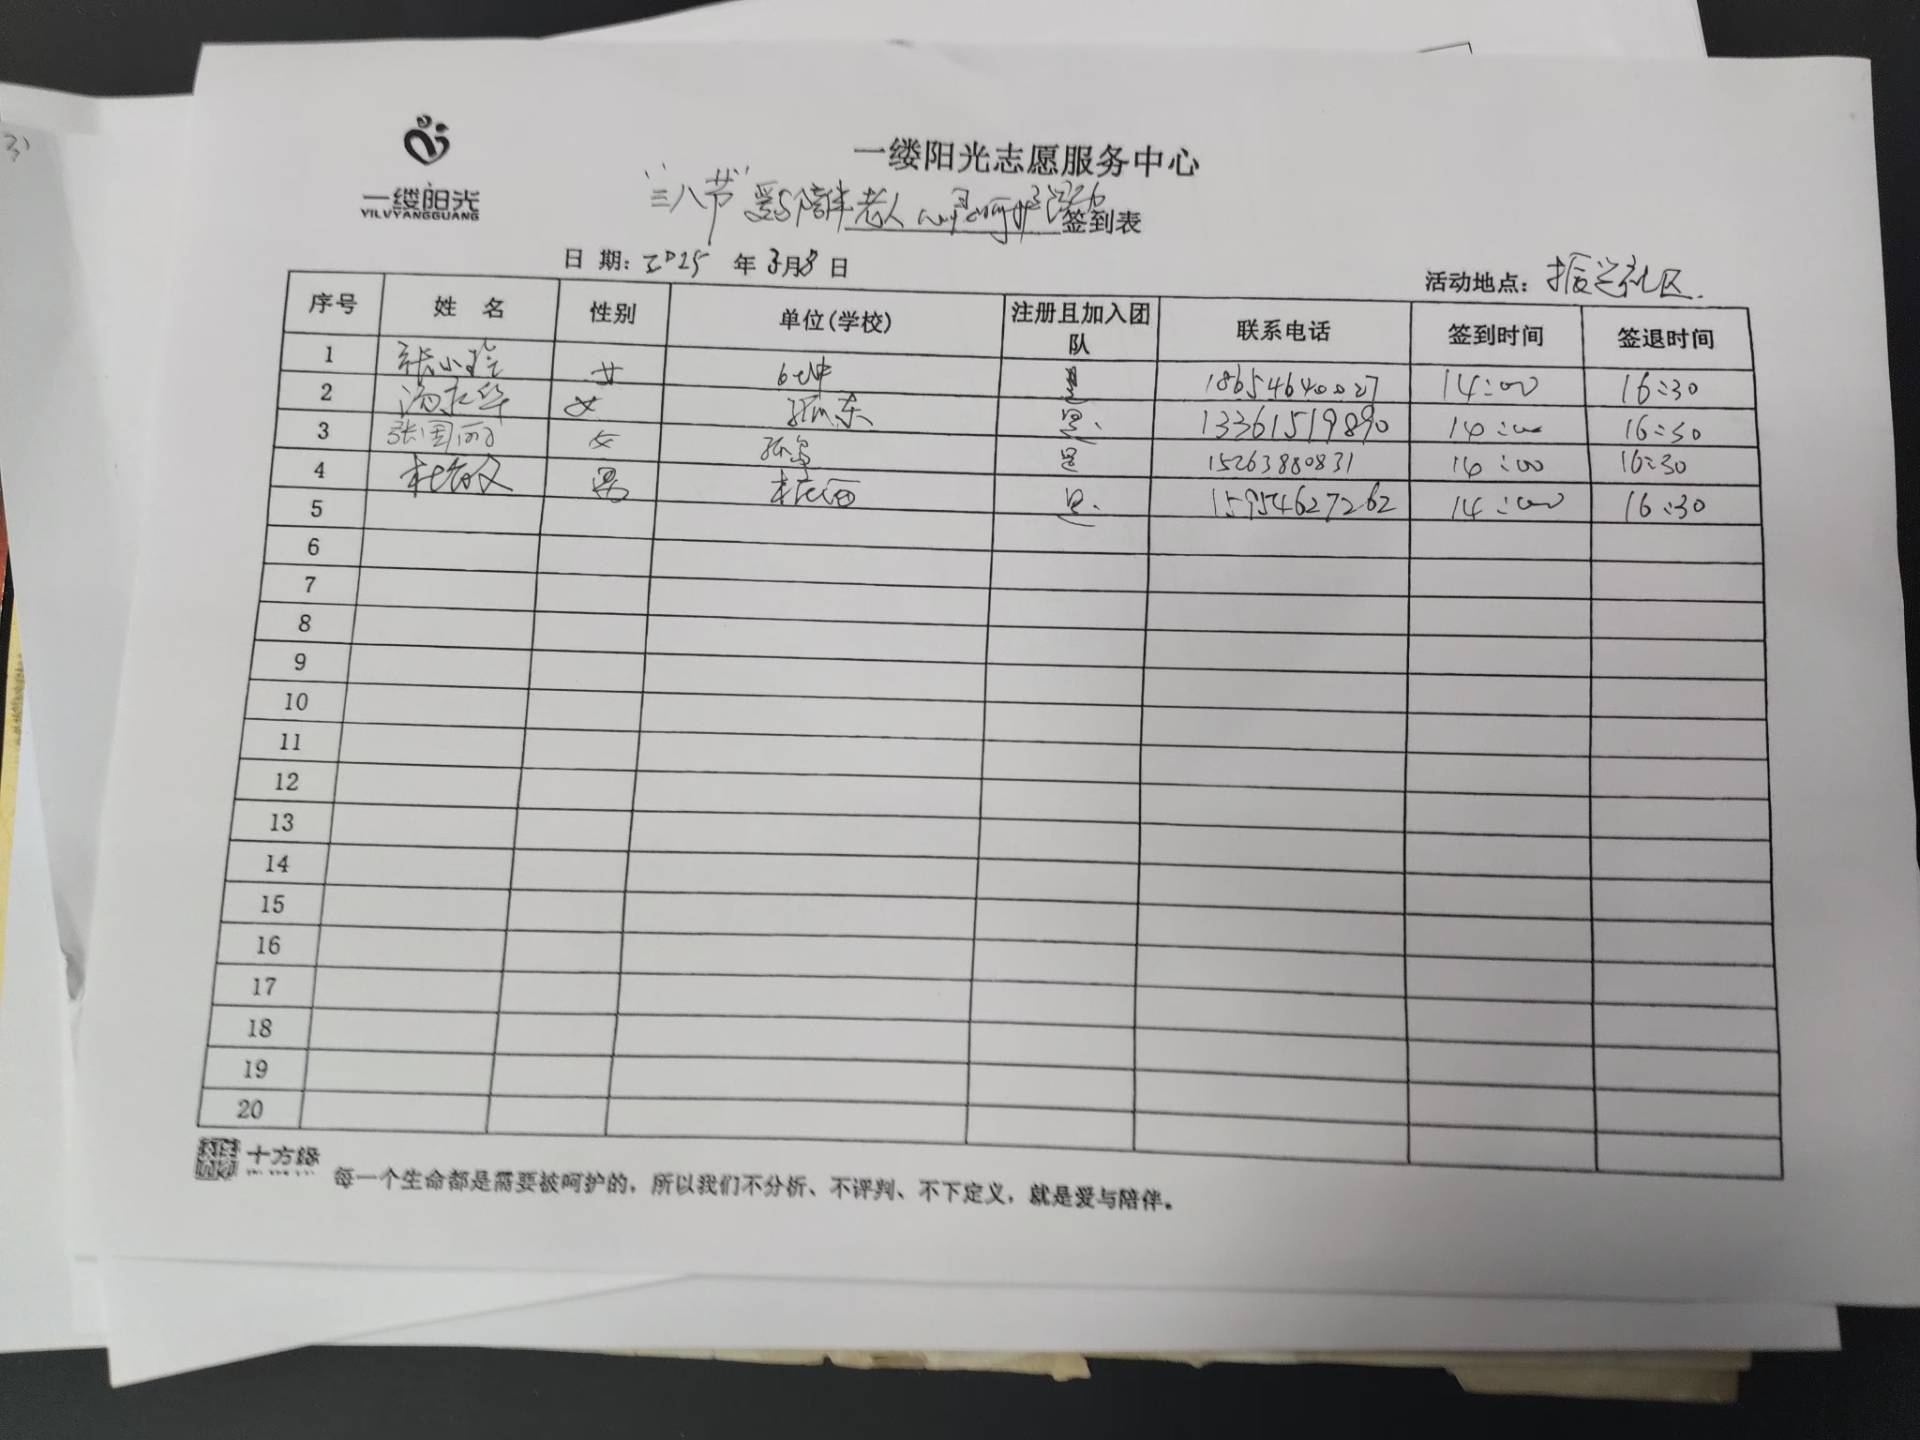 一缕阳光
YILVYANGGUANG
一缕阳光志愿服务中心
"三八节"爱与陪伴老人心灵呵护活动签到表
日 期: 2025 年 3月8 日 活动地点: 振兴社区.
序号 姓 名 性别 单位(学校) 注册且加入团队 联系电话 签到时间 签退时间
1 张小玲 女 是 18654640027 14:00 16:30
2 女 孤东 是. 13361519890 14:00 16:30
3 张国丽 女 孤岛 是 15263880831 14:00 16:30
4 男 桩西 是. 15954627262 14:00 16:30
5
6
7
8
9
10
11
12
13
14
15
16
17
18
19
20
十方缘 每一个生命都是需要被呵护的，所以我们不分析、不评判、不下定义，就是爱与陪伴。